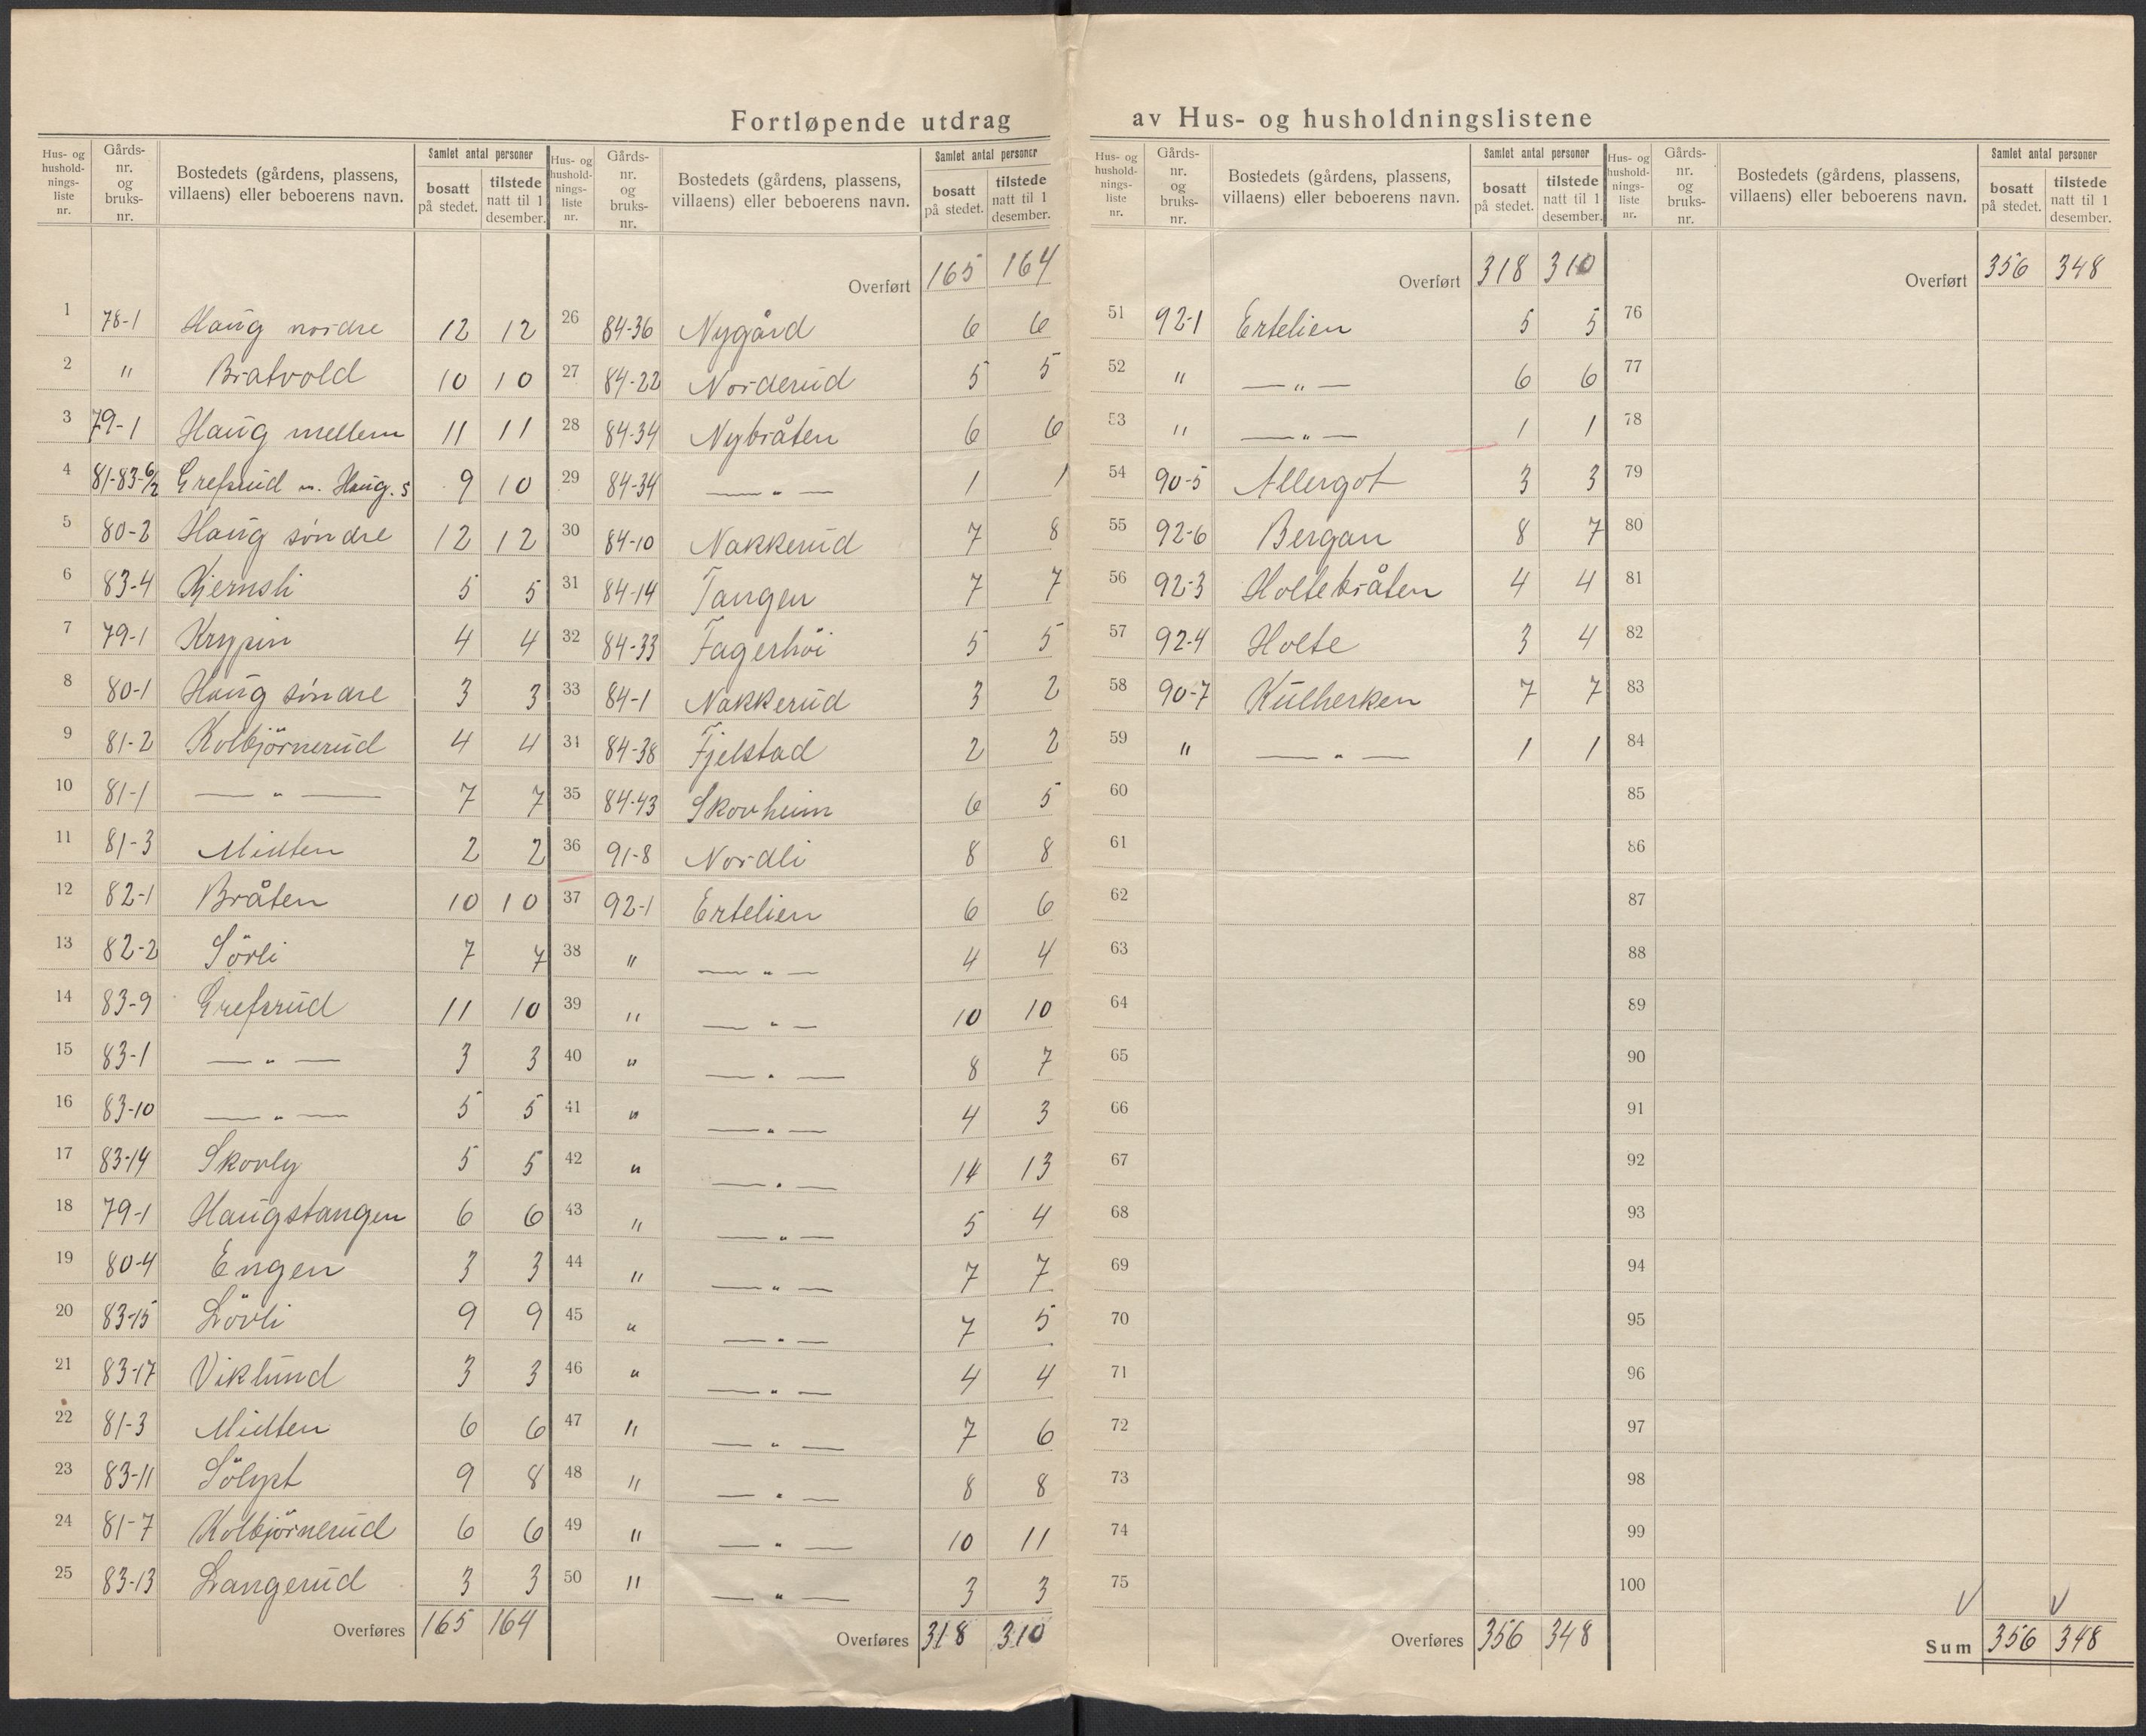 Fortløpende utdrag av Hus- og husholdningslistene
Hus- og hushold-nings-liste nr. Gårds-nr. og bruks-nr. Bostedets (gårdens, plassens, villaens) eller beboerens navn. Samlet antal personer bosatt på stedet. tilstede natt til 1 desember.
1 78-1 Haug nordre 12 12
2 " Bratvold 10 10
3 79-1 Haug mellem 11 11
4 81-83-6/2 Grefsrud m. Haug. s 9 10
5 80-2 Haug söndre 12 12
6 83-4 Kjernsli 5 5
7 79-1 Krypin 4 4
8 80-1 Haug söndre 3 3
9 81-2 Kolbjörnerud 4 4
10 81-1 — " — 7 7
11 81-3 Midten 2 2
12 82-1 Bråten 10 10
13 82-2 Sörli 7 7
14 83-9 Grefsrud 11 10
15 83-1 — " — 3 3
16 83-10 — " — 5 5
17 83-14 Skovly 5 5
18 79-1 Haugstangen 6 6
19 80-4 Engen 3 3
20 83-15 Lövli 9 9
21 83-17 Viklund 3 3
22 81-3 Midten 6 6
23 83-11 Sölyst 9 8
24 81-7 Kolbjörnerud 6 6
25 83-13 Langerud 3 3
Overføres 165 164
Hus- og hushold-nings-liste nr. Gårds-nr. og bruks-nr. Bostedets (gårdens, plassens, villaens) eller beboerens navn. Samlet antal personer bosatt på stedet. tilstede natt til 1 desember.
Overført 165 164
26 84-36 Nygård 6 6
27 84-22 Norderud 5 5
28 84-34 Nybråten 6 6
29 84-34 — " — 1 1
30 84-10 Nakkerud 7 8
31 84-14 Tangen 7 7
32 84-33 Fagerhöi 5 5
33 84-1 Nakkerud 3 2
34 84-38 Fjelstad 2 2
35 84-43 Skovheim 6 5
36 91-8 Nordli 8 8
37 92-1 Ertelien 6 6
38 " — " — 4 4
39 " — " — 10 10
40 " — " — 8 7
41 " — " — 4 3
42 " — " — 14 13
43 " — " — 5 4
44 " — " — 7 7
45 " — " — 7 5
46 " — " — 4 4
47 " — " — 7 6
48 " — " — 8 8
49 " — " — 10 11
50 " — " — 3 3
Overføres 318 310
Hus- og hushold-nings-liste nr. Gårds-nr. og bruks-nr. Bostedets (gårdens, plassens, villaens) eller beboerens navn. Samlet antal personer bosatt på stedet. tilstede natt til 1 desember.
Overført 318 310
51 92-1 Ertelien 5 5
52 " — " — 6 6
53 " — " — 1 1
54 90-5 Allergot 3 3
55 92-6 Bergan 8 7
56 92-3 Holtebråten 4 4
57 92-4 Holte 3 4
58 90-7 Kulherken 7 7
59 " — " — 1 1
60
61
62
63
64
65
66
67
68
69
70
71
72
73
74
75
Overføres 356 348
Hus- og hushold-nings-liste nr. Gårds-nr. og bruks-nr. Bostedets (gårdens, plassens, villaens) eller beboerens navn. Samlet antal personer bosatt på stedet. tilstede natt til 1 desember.
Overført 356 348
76
77
78
79
80
81
82
83
84
85
86
87
88
89
90
91
92
93
94
95
96
97
98
99
100
Sum 356 348